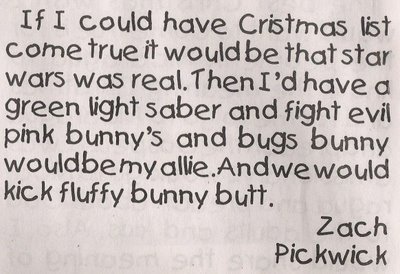 If I could have Cristmas list
come true it would be that star
wars was real. Then I'd have a
green light saber and fight evil
pink bunny's and bugs bunny
would be my allie. And we would
kick fluffy bunny butt.
Zach
Pickwick